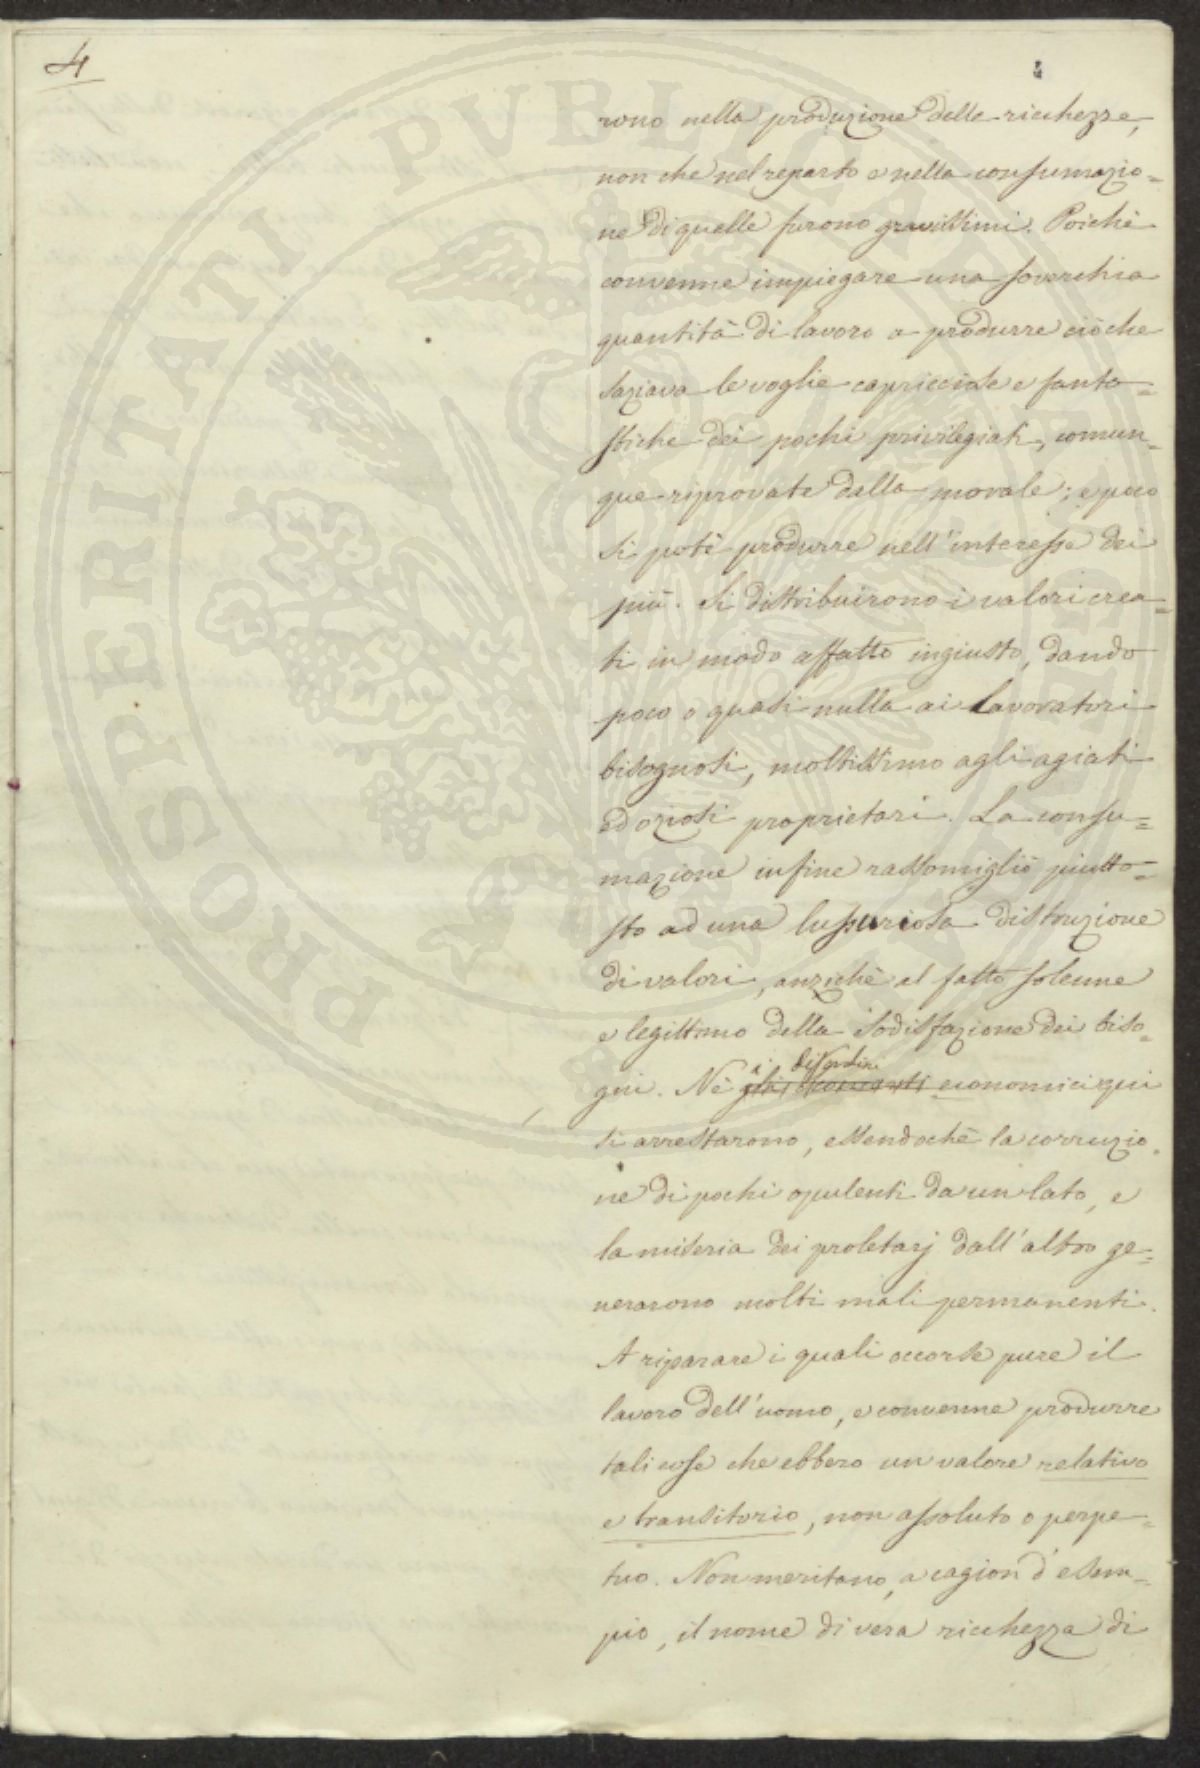 4
rono nella produzione delle ricchezze,
non che nel reparto e nella consumazio=
ne di quelle furono gravissimi. Poichè
convenne impiegare una soverchia
quantità di lavoro a produrre ciò che
saziava le voglie capricciose e fanta=
stiche dei pochi privilegiati, comun=
que riprovate dalla morale; e poco
si potè produrre nell'interesse dei
più. Si distribuirono i valori crea=
ti in modo affatto ingiusto, dando
poco o quasi nulla ai lavoratori
bisognosi, moltissimo agli agiati
ed oziosi proprietari. La consu=
mazione infine rassomigliò piutto=
sto ad una lussuriosa distruzione
di valori, anzichè al fatto solenne
e legittimo della sodisfazione dei biso=
i disordini
gni. Nè gli economici qui
si arrestarono, essendochè la corruzio=
ne di pochi opulenti da un lato, e
la miseria dei proletarj dall'altro ge=
nerarono molti mali permanenti.
A riparare i quali occorse pure il
lavoro dell'uomo, e convenne produrre
tali cose che ebbero un valore relativo
e transitorio, non assoluto o perpe=
tuo. Non meritano, a cagion d'esem=
pio, il nome di vera ricchezza di
PROSPERITATI PVBLICAE